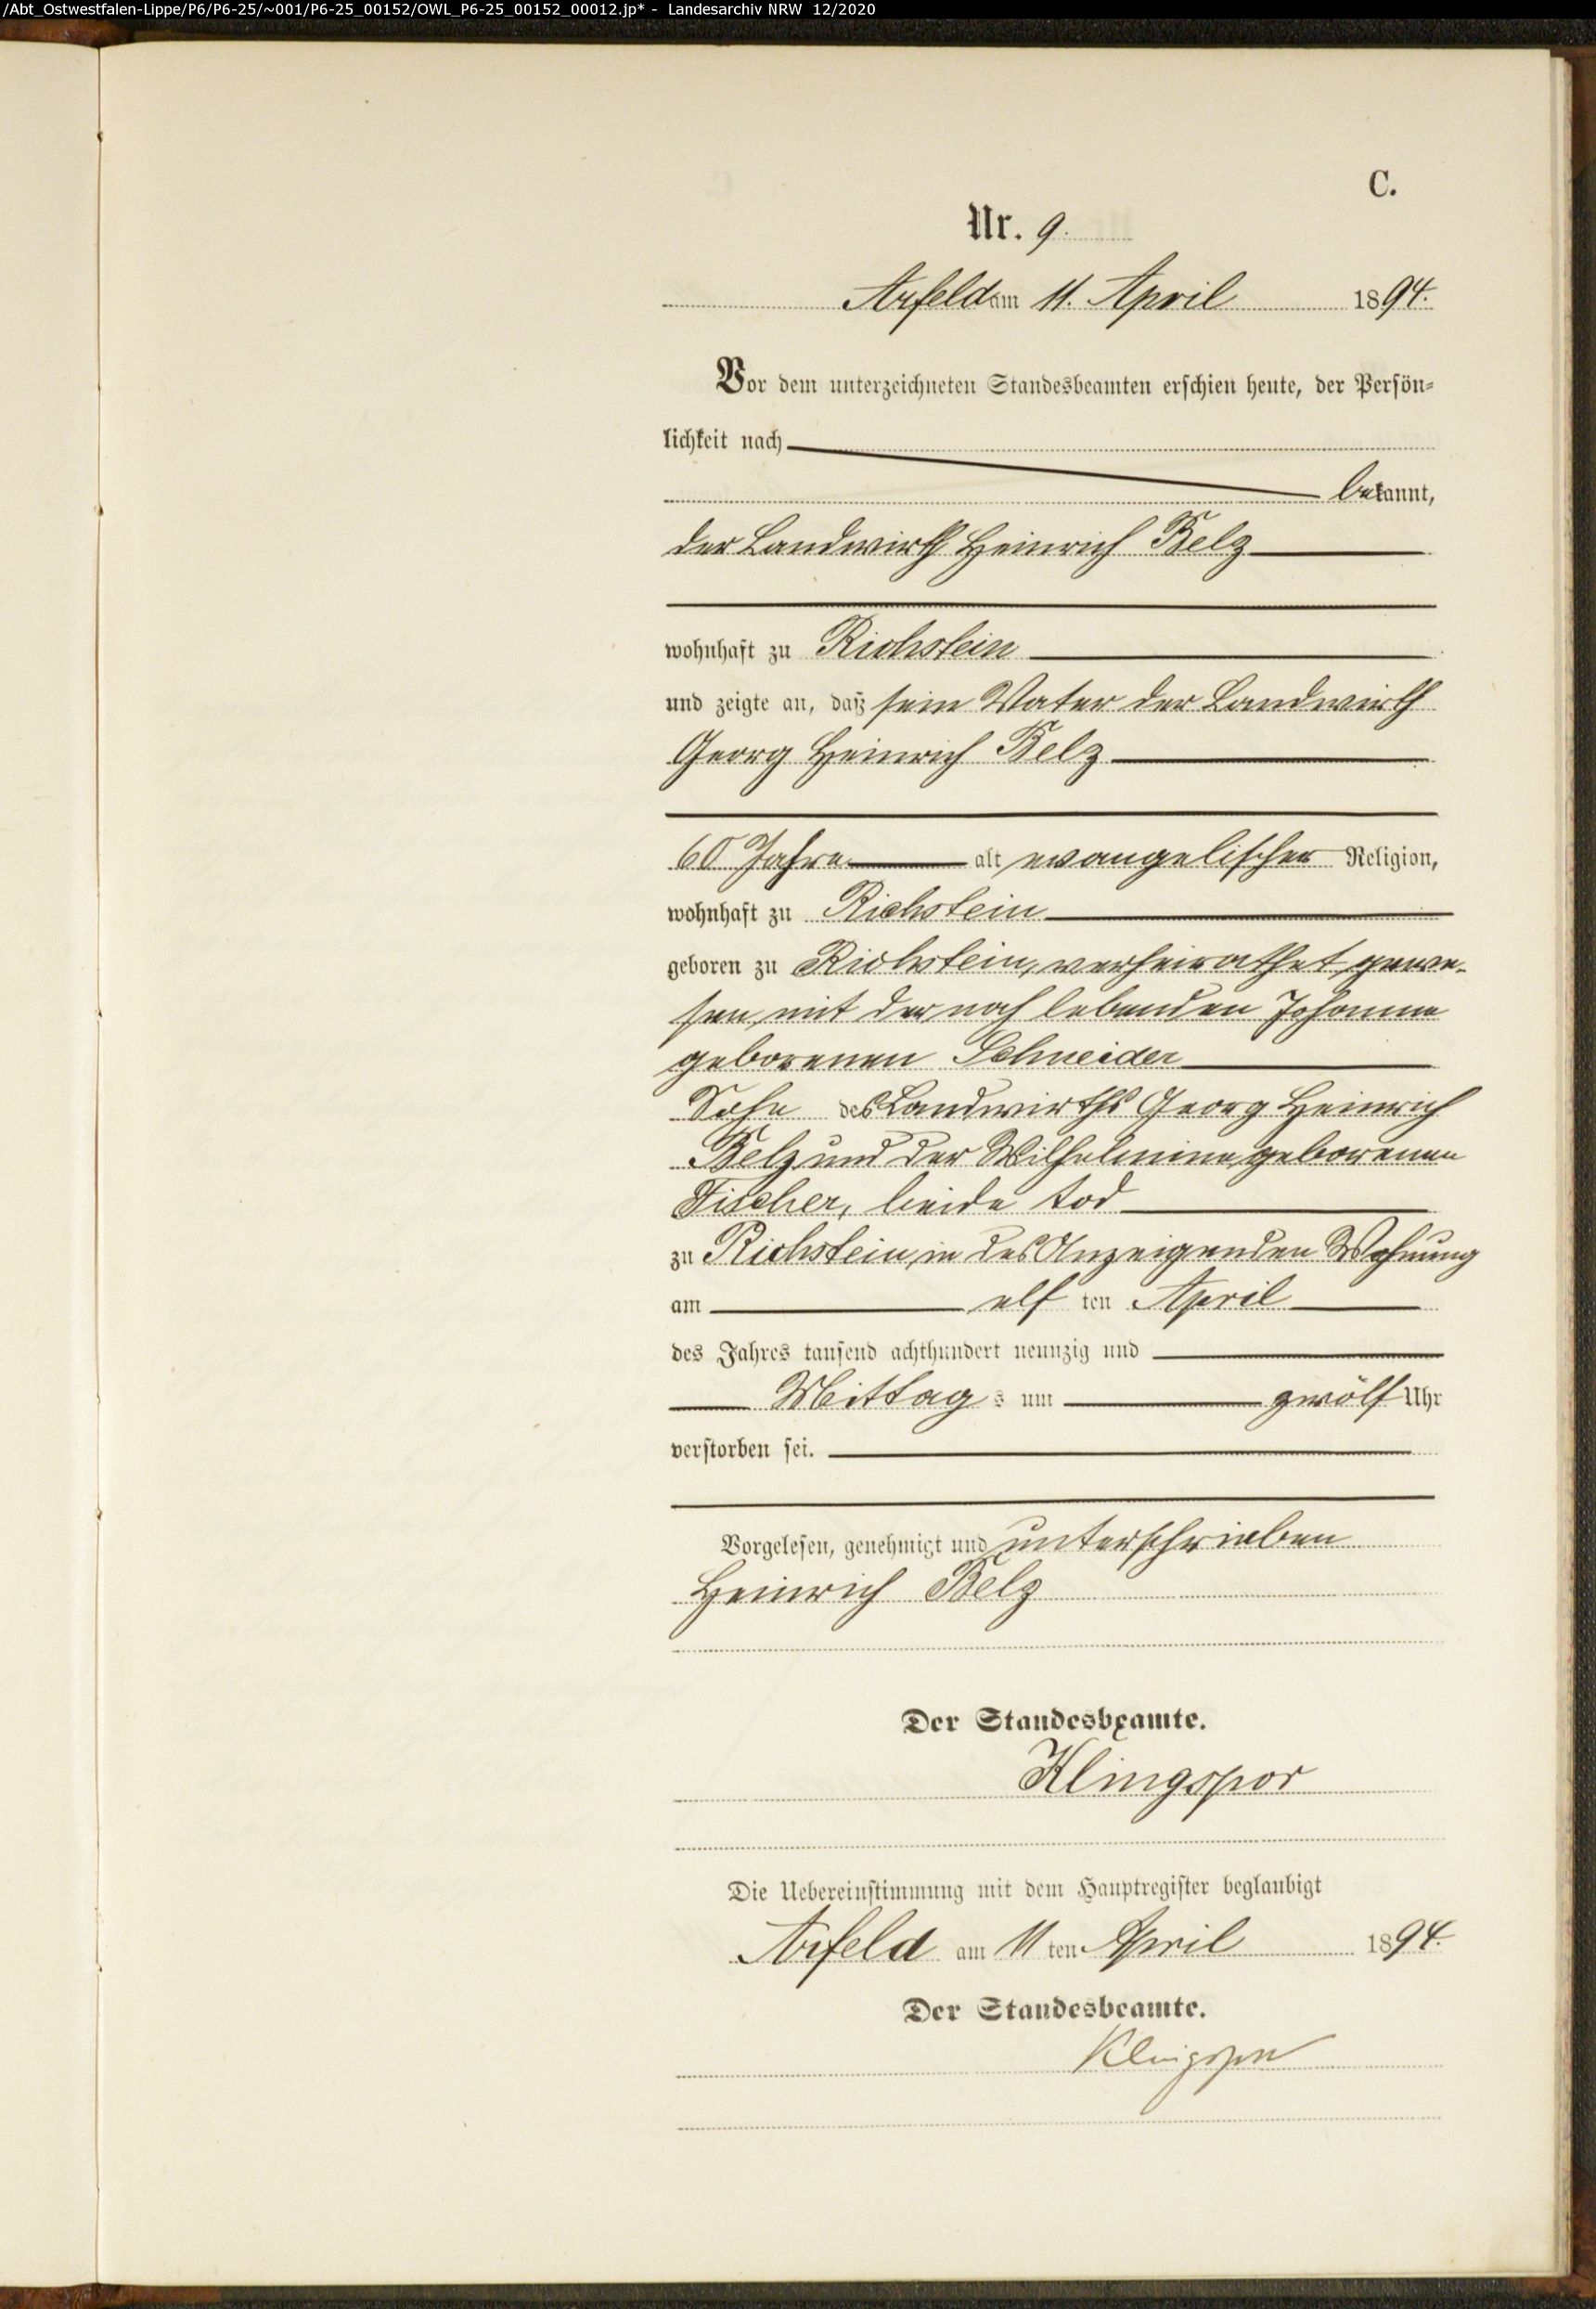 /Abt_Ostwestfalen-Lippe/P6/P6-25/~001/P6-25_00152/OWL_P6-25_00152_00012.jp* - Landesarchiv NRW 12/2020
C.
Nr. 9.
Arfeld am 11. April 1894.
Vor dem unterzeichneten Standesbeamten erschien heute, der Persön-
lichkeit nach
bekannt,
der Landwirth Heinrich Belz
wohnhaft zu Richstein
und zeigte an, daß sein Vater der Landwirth
Georg Heinrich Belz
60 Jahre alt evangelischer Religion,
wohnhaft zu Richstein
geboren zu Richstein, verheirathet gewe-
sen mit der noch lebenden Johanne
geborenen Schneider
Sohn des Landwirths Georg Heinrich
Belz und der Wilhelmine geborenen
Fischer, beide tod
zu Richstein in des Anzeigenden Wohnung
am elf ten April
des Jahres tausend achthundert neunzig und
Mittag s um zwölf Uhr
verstorben sei.
Vorgelesen, genehmigt und unterschrieben
Heinrich Belz
Der Standesbeamte.
Klingspor
Die Uebereinstimmung mit dem Hauptregister beglaubigt
Arfeld am 11 ten April 1894.
Der Standesbeamte.
Klingspor